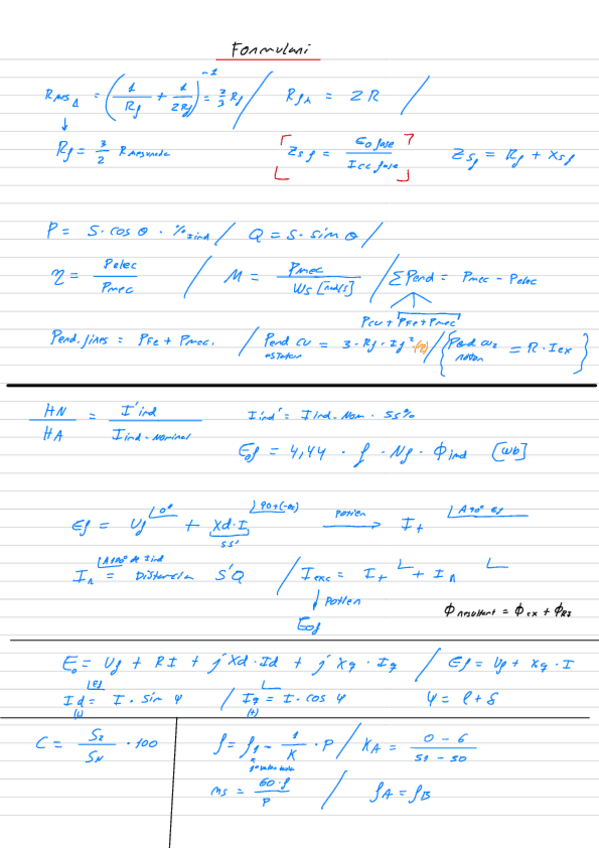 Formulari
R mes Δ = (1/Rf + 1/2Rf)^-1 = 2/3 Rf / Rfλ = 2R /
↓
Rf = 3/2 R mesurada [Zsf = Eo fase / Icc fase] Zsf = Rf + Xsf
P = S·cos θ · % ind / Q = S·sim θ /
η = Pelec / Pmec / M = Pmec / Ws [rad/s] / ∑Perd = Pmec - Pelec
Pcu + PFe + Pmec
Perd. fixes = PFe + Pmec. / Perd cu estator = 3·Rf·If² / { Perd cu rotor = R·Iex }
HN / HA = I'ind / Iind-nominal Iind' = Iind.Nom · 55%
Eof = 4,44 · f · Nf · Φind [wb]
Ef = Uf |0° + Xd·I |90+(-α) → It
55'
Distancia S'Q / Iexc = It + IA
↓
Eof Φ resultant = Φex + ΦRI
Eo = Uf + RI + j Xd·Id + j Xq·Iq / Ef = Uf + Xq·I
Id = I·Sin Ψ / Iq = I·cos Ψ Ψ = φ + δ
C = S2 / SN · 100 f = f1 - 1/K · P / KA = 0-6 / 51-50
ms = 60·f / P / fA = fB